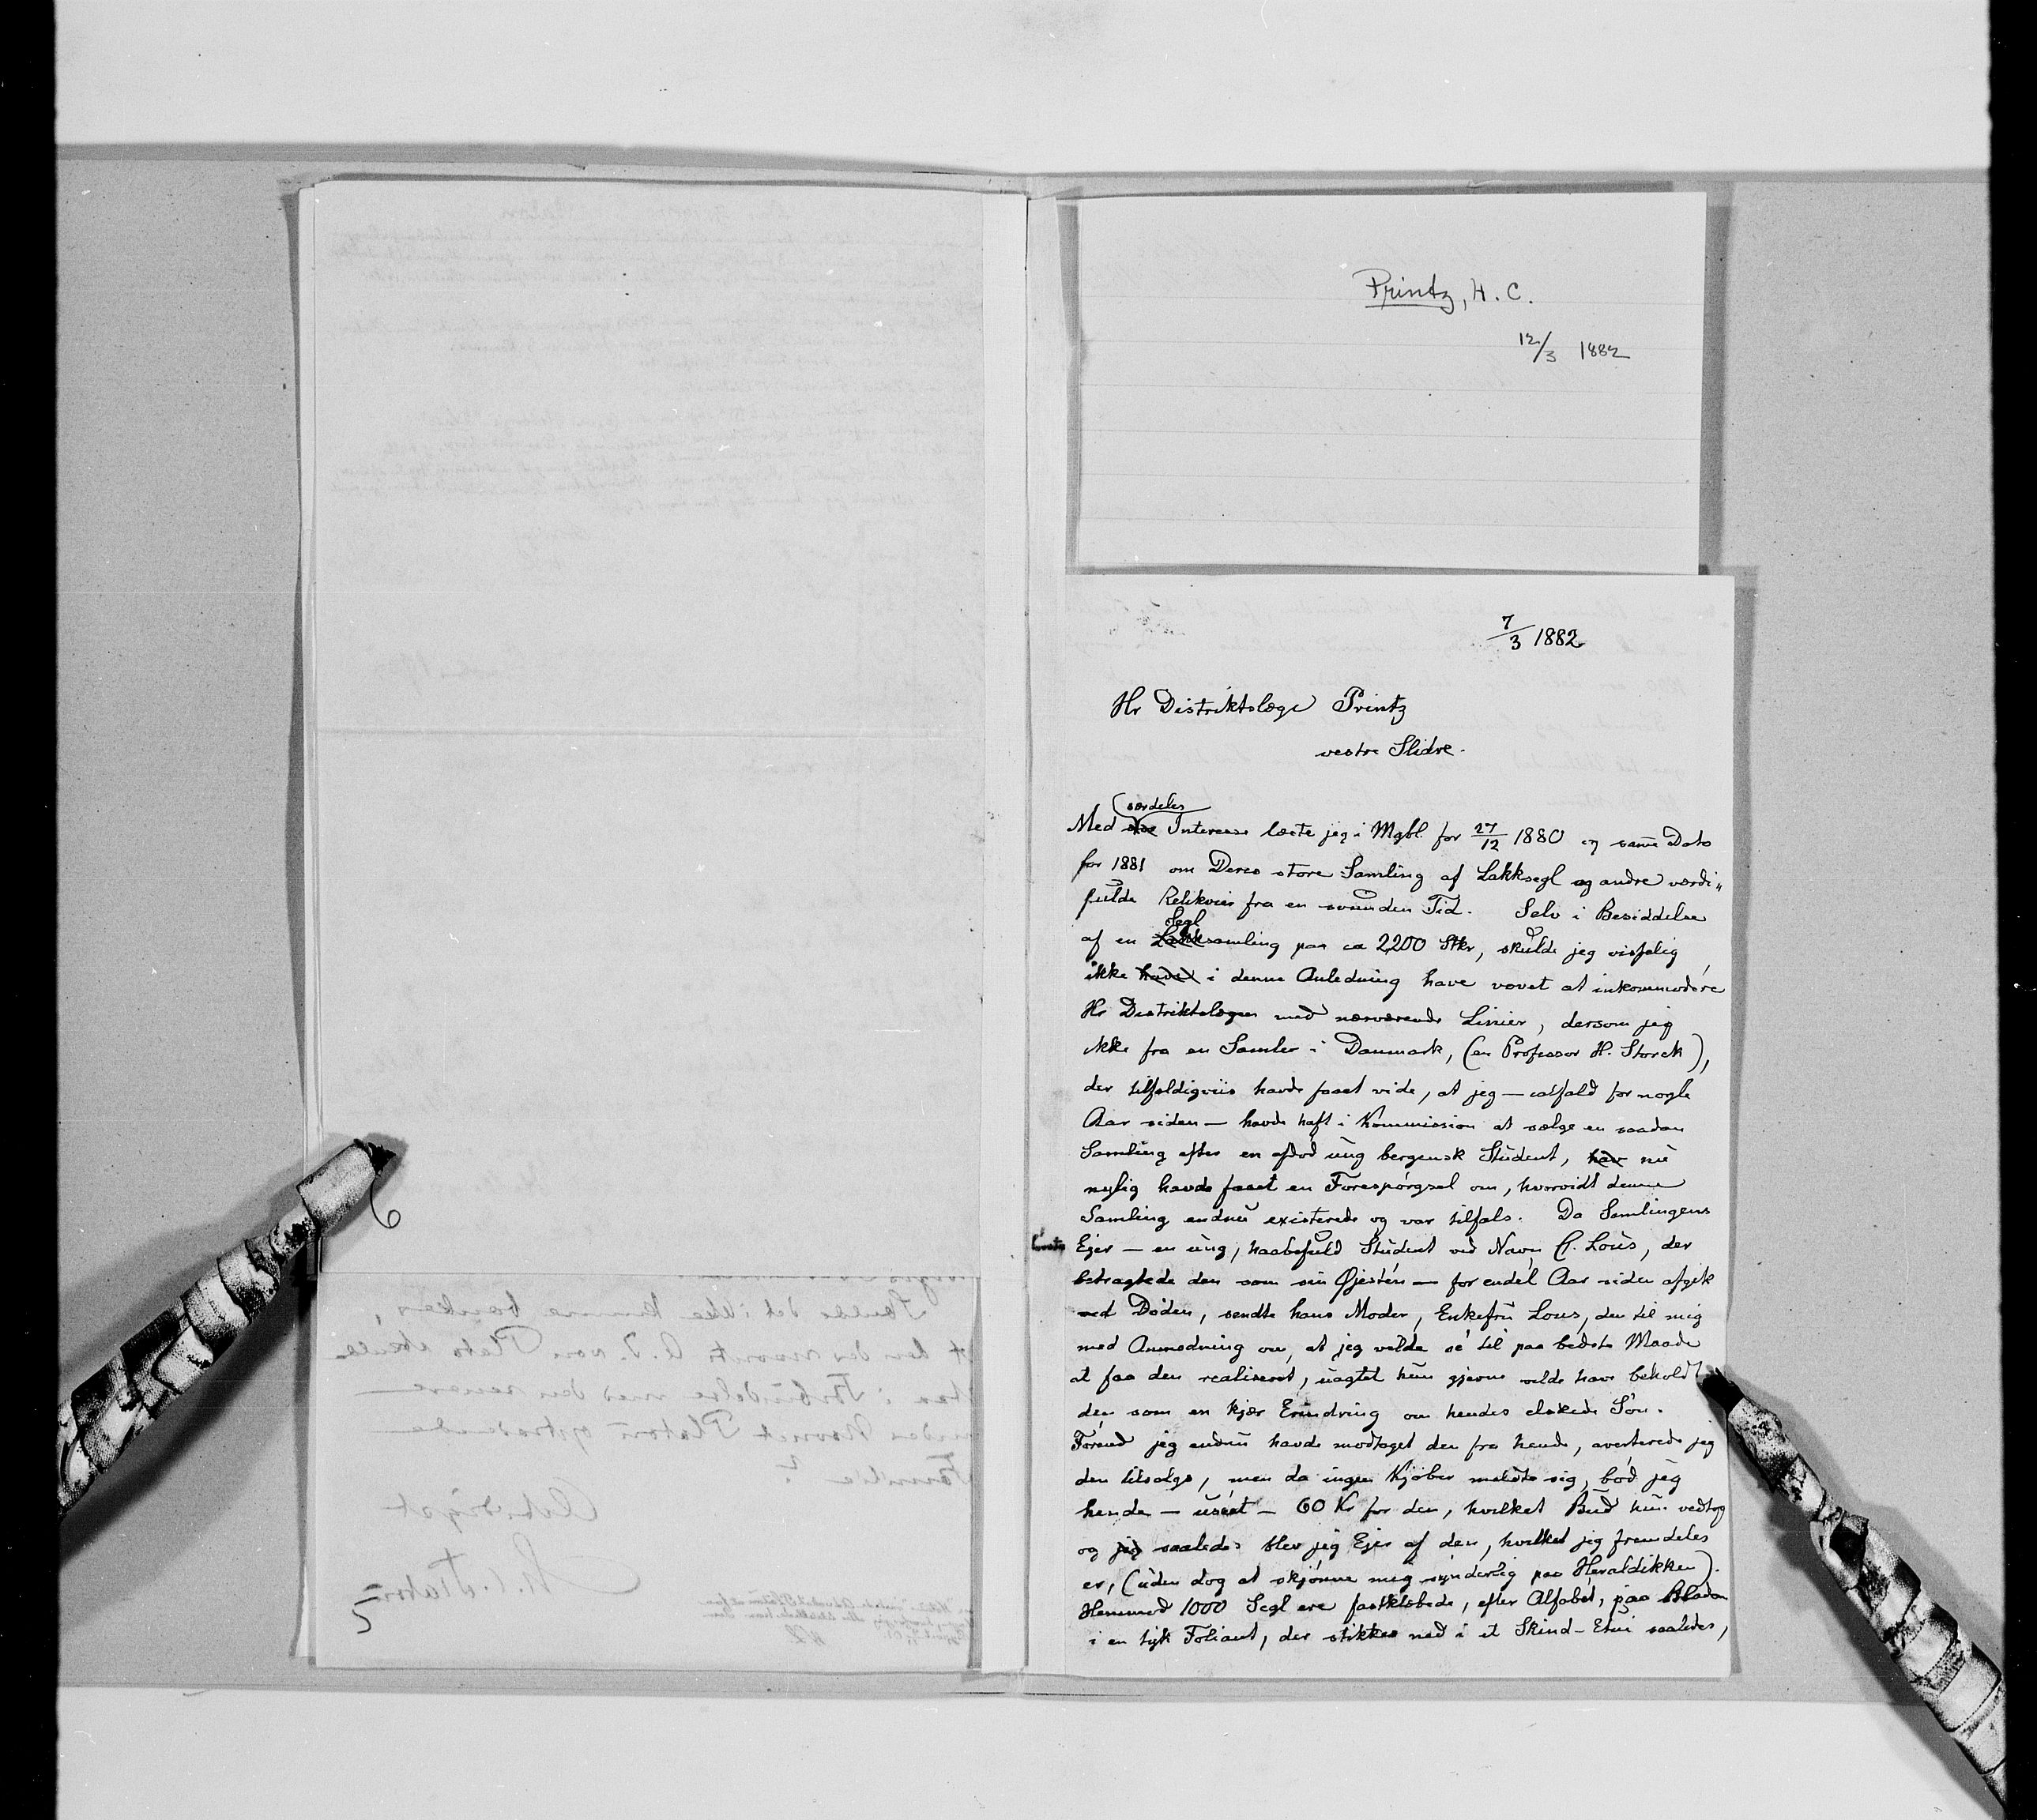 Printz, H. C.
12/3 1882
7/3 1882
Hr Distriktslæge Printz
vestre Slidre.
særdeles
Med stor Interesse læste jeg i Mgbl. for 27/12 1880 og samme Dato
for 1881 om Deres store Samling af Lakksegl og andre værdi„
fulde Relikvier fra en svunden Tid. Selv i Besiddelse
Segl
af en Lakksamling paa ca 2200 Stkr, skulde jeg visselig
ikke have i denne Anledning have vovet at inkommodere
Hr Distriktslægen med nærværende Linier, dersom jeg
ikke fra en Samler i Danmark, (en Professor H. Storck),
der tilfældigviis havde faaet vide, at jeg — ialfald for nogle
Aar siden — havde haft i Kommission at sælge en saadan
Samling efter en afdød ung bergensk Student, har nu
nylig havde faaet en Forespørgsel om, hvorvidt denne
Samling endnu existerede og var tilfals. Da Samlingens
Ejer — en ung, haabefuld Student ved Navn Lous, der
betragtede den som sin Øjesten — for endel Aar siden afgik
ved Døden, sendte hans Moder, Enkefru Lous, den til mig
med Anmodning om, at jeg vilde se til paa bedste Maade
at faa den realiseret, uagtet hun gjerne vilde have beholdt
den som en kjær Erindring om hendes elskede Søn.
Førend jeg endnu havde modtaget den fra hende, averterede jeg
den tilsalgs, men da ingen Kjøber meldte sig, bød jeg
hende — useet — 60 Kr for den, hvilket Bud hun vedtog
og jeg saaledes blev jeg Ejer af den, hvilket jeg fremdeles
er, (uden dog at skjønne mig synderlig paa Heraldikken).
Henimod 1000 Segl ere fastklæbede, efter Alfabet, paa Bladene
i en tyk Foliant, der stikkes ned i et Skind-Etui saaledes,
6
5